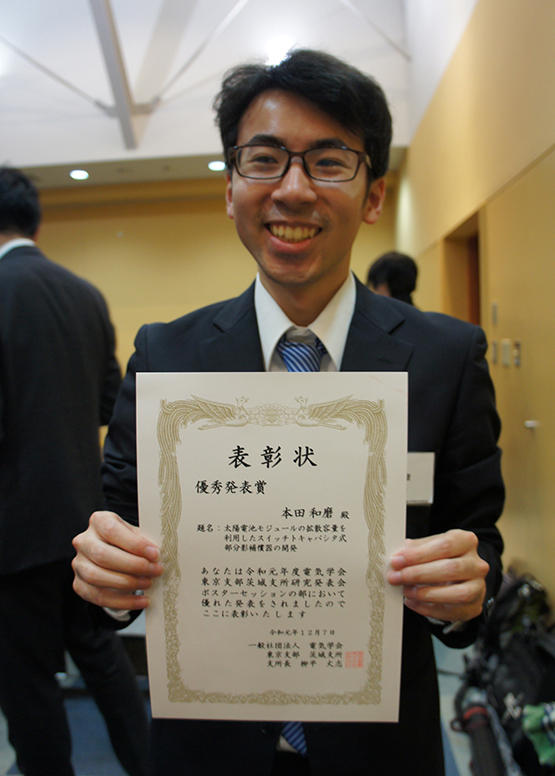 表彰状
優秀発表賞
本田 和磨 殿
題名：太陽電池モジュールの拡散容量を
利用したスイッチトキャパシタ式
部分影補償器の開発
あなたは令和元年度電気学会
東京支部茨城支所研究発表会
ポスターセッションの部において
優れた発表をされましたので
ここに表彰いたします
令和元年１２月７日
一般社団法人 電気学会
東京支部 茨城支所
支所長 柳平 大志